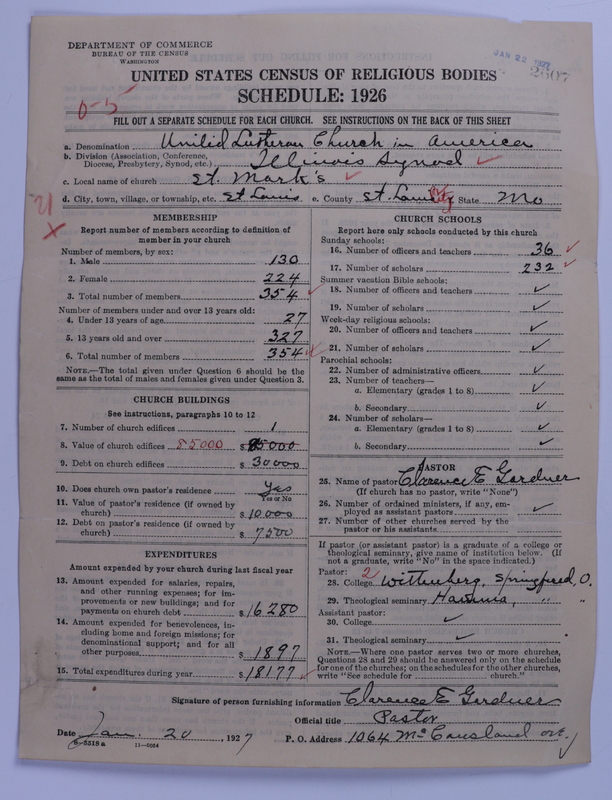 DEPARTMENT OF COMMERCE
BUREAU OF THE CENSUS
WASHINGTON
JAN 22 1927
2607
UNITED STATES CENSUS OF RELIGIOUS BODIES
SCHEDULE: 1926
0-5
FILL OUT A SEPARATE SCHEDULE FOR EACH CHURCH. SEE INSTRUCTIONS ON THE BACK OF THIS SHEET
a. Denomination United Lutheran Church in America
b. Division (Association, Conference, Diocese, Presbytery, Synod, etc.) Illinois Synod
c. Local name of church St. Mark's
d. City, town, village, or township, etc. St Louis e. County St Louis City State Mo
MEMBERSHIP
Report number of members according to definition of member in your church
Number of members, by sex:
1. Male 130
2. Female 224
3. Total number of members 354
Number of members under and over 13 years old:
4. Under 13 years of age 27
5. 13 years old and over 327
6. Total number of members 354
NOTE.—The total given under Question 6 should be the same as the total of males and females given under Question 3.
CHURCH BUILDINGS
See instructions, paragraphs 10 to 12
7. Number of church edifices 1
8. Value of church edifices 85000 $85000
9. Debt on church edifices $30000
10. Does church own pastor's residence Yes
Yes or No
11. Value of pastor's residence (if owned by church) $10000
12. Debt on pastor's residence (if owned by church) $7500
EXPENDITURES
Amount expended by church during last fiscal year
13. Amount expended for salaries, repairs, and other running expenses; for improvements or new buildings; and for payments on church debt $16280
14. Amount expended for benevolences, including home and foreign missions; for denominational support; and for all other purposes $1897
15. Total expenditures during year $18177
CHURCH SCHOOLS
Report here only schools conducted by this church
Sunday schools:
16. Number of officers and teachers 36
17. Number of scholars 232
Summer vacation Bible schools:
18. Number of officers and teachers ✓
19. Number of scholars ✓
Week-day religious schools:
20. Number of officers and teachers ✓
21. Number of scholars ✓
Parochial schools:
22. Number of administrative officers ✓
23. Number of teachers—
a. Elementary (grades 1 to 8) ✓
b. Secondary ✓
24. Number of scholars—
a. Elementary (grades 1 to 8) ✓
b. Secondary ✓
PASTOR
25. Name of pastor Clarence E Gardner
(If church has no pastor, write "None")
26. Number of ordained ministers, if any, employed as assistant pastors ✓
27. Number of other churches served by the pastor or his assistants
If pastor (or assistant pastor) is a graduate of a college or theological seminary, give name of institution below. (If not a graduate, write "No" in the space indicated.)
Pastor: 2
28. College Wittenberg, Springfield, O.
29. Theological seminary Hamma, " "
Assistant pastor:
30. College ✓
31. Theological seminary ✓
NOTE.—Where one pastor serves two or more churches, Questions 28 and 29 should be answered only on the schedule for one of the churches; on the schedules for the other churches, write "See schedule for ........ church."
Signature of person furnishing information Clarence E Gardner
Official title Pastor
Date Jan. 20, 1927 P. O. Address 1064 McCausland ave.
8-5318 a 11-5054